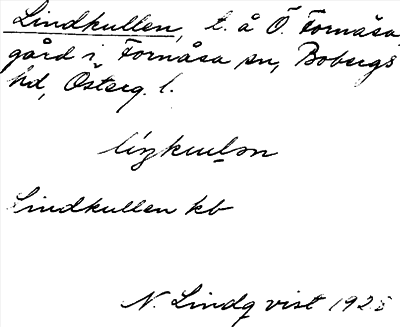 Lindkullen, t. å Ö. Fornåsa
gård i Fornåsa sn, Bobergs
hd, Österg. l.
Lindkullen kb
N. Lindqvist 192